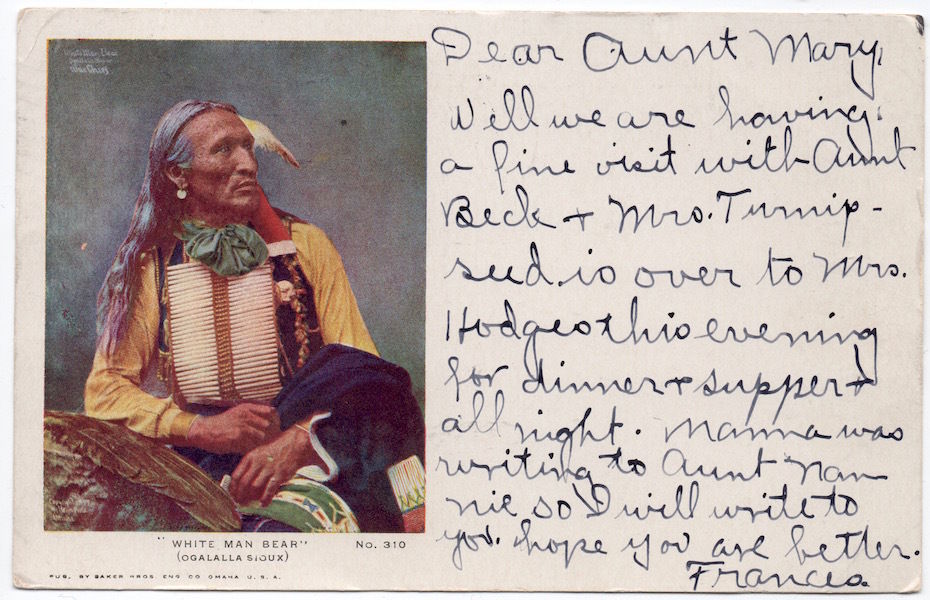 White Man Bear
Dear Aunt Mary,
Well we are having
a fine visit with Aunt
Beck + Mrs. Turnip-
seed is over to Mrs.
Hodges this evening
for dinner + supper +
all night. Mamma was
writing to Aunt Nan
nie so I will write to
you. hope you are better.
Frances.
"WHITE MAN BEAR" No. 310
(OGALALLA SIOUX)
PUB. BY BAKER BROS. ENG CO OMAHA U.S.A.